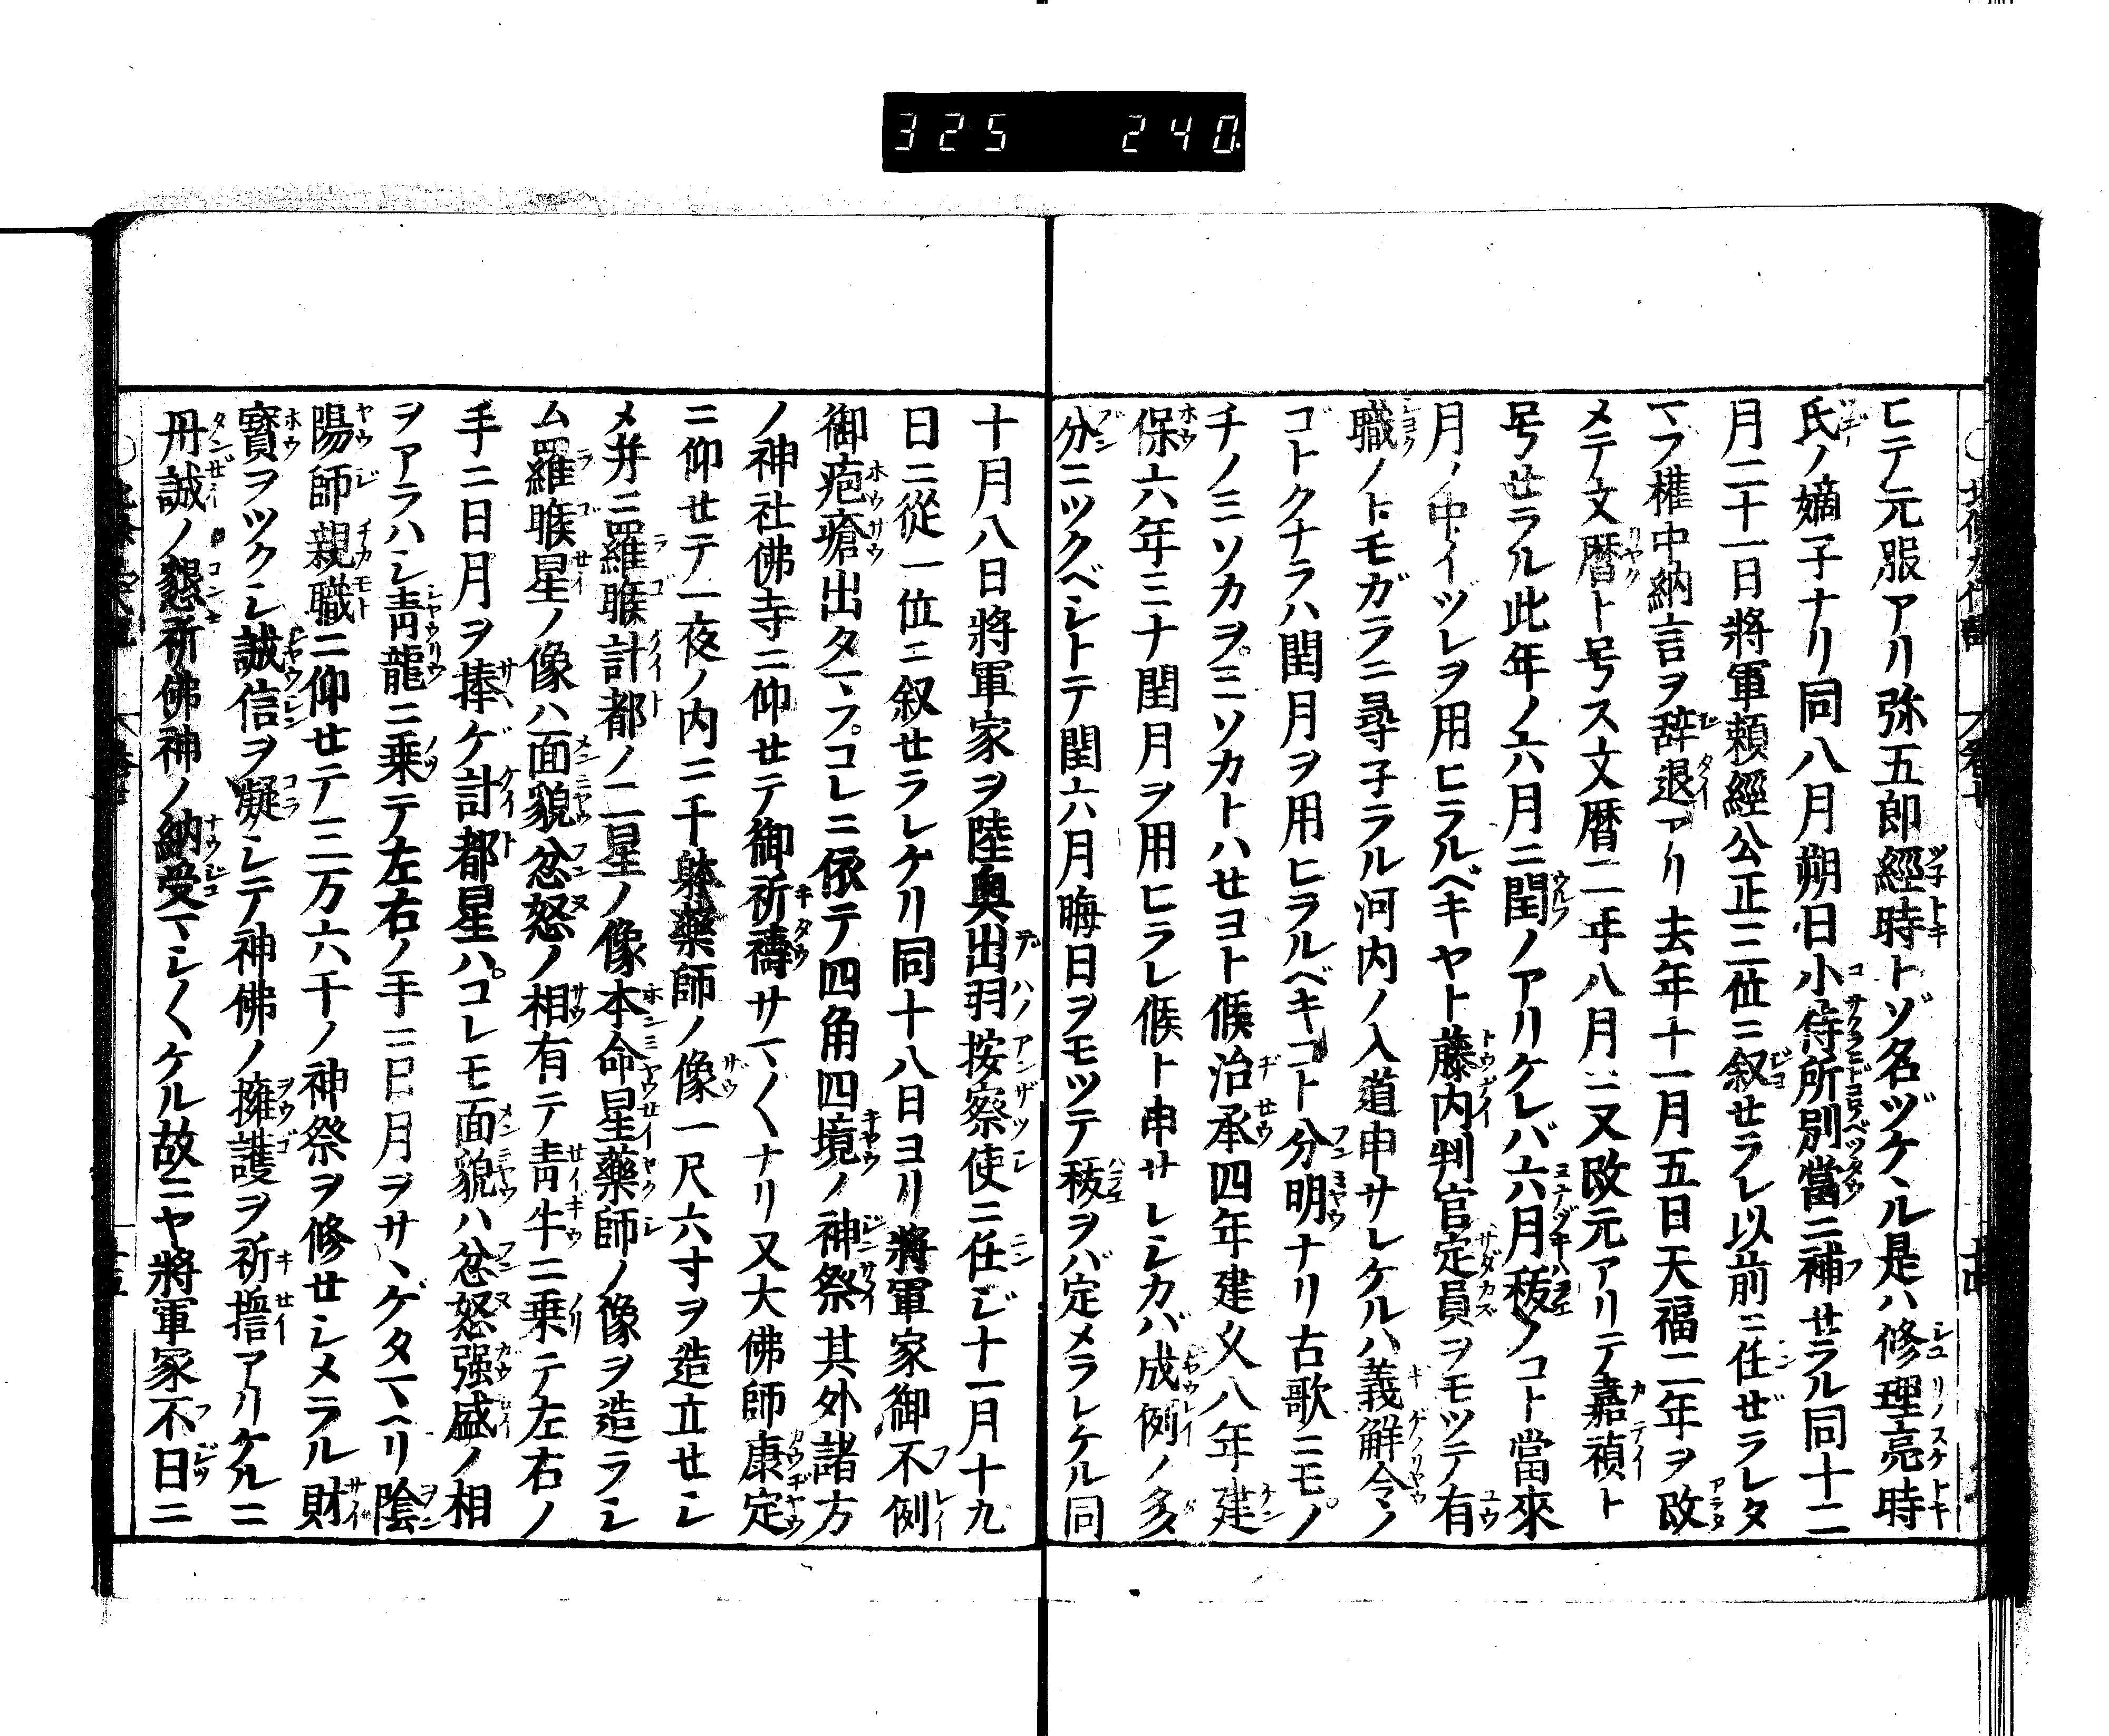 325 240
ヒテ元服アリ弥五郎經時トゾ名ヅケヽル是ハ修理亮時
氏ノ嫡子ナリ同八月朔日小侍所別當ニ補せラル同十二
月二十一日將軍頼經公正三位ニ叙せラレ以前ニ任ぜラレタ
マフ權中納言ヲ辞退アリ去年十一月五日天福二年ヲ改
メテ文暦ト号ス文暦二年八月ニ又改元アリテ嘉禎ト
号せラル此年ノ六月ニ閏ノアリケレバ六月秡ノコト當來
月ノ中イヅレヲ用ヒラルベキヤト藤内判官定員ヲモツテ有
職ノトモガラニ尋子ラル河内ノ入道申サレケルハ義解令ノ
ゴトクナラハ閏月ヲ用ヒラルベキコト分明ナリ古歌ニモノ
チノミソカヲミソカトハせヨト候治承四年建久八年建
保六年ミナ閏月ヲ用ヒラレ候ト申サレシカバ成例ノ多
分ニツクベシトテ閏六月晦日ヲモツテ秡ヲバ定メラレケル同
十月八日將軍家ヲ陸奥出羽按察使ニ任じ十一月十九
日ニ從一位ニ叙せラレケリ同十八日ヨリ將軍家御不例
御疱瘡出タマフコレニ依テ四角四境ノ神祭其外諸方
ノ神社佛寺ニ仰せテ御祈禱サマ〱ナリ又大佛師康定
ニ仰せテ一夜ノ内ニ千躰藥師ノ像一尺六寸ヲ造立せシ
メ并ニ羅睺計都ノ二星ノ像本命星藥師ノ像ヲ造ラシ
ム羅睺星ノ像ハ面貌忿怒ノ相有テ青牛ニ乗テ左右ノ
手ニ日月ヲ捧ゲ計都星ハコレモ面貌ハ忿怒强盛ノ相
ヲアラハシ青龍ニ乗テ左右ノ手ニ日月ヲサヽゲタマヘリ陰
陽師親職ニ仰せテ三万六千ノ神祭ヲ修せシメラル財
寳ヲツクシ誠信ヲ凝シテ神佛ノ擁護ヲ祈誓アリケルニ
丹誠ノ懇祈佛神ノ納受マシ〱ケル故ニヤ將軍家不日ニ